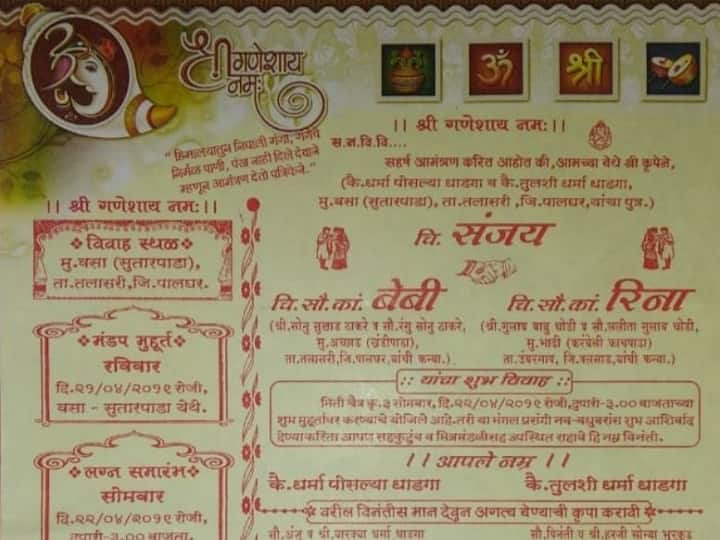 श्री गणेशाय नमः
ॐ
श्री
" हिमालयातुन निघाली गंगा, गंगेचे
निर्मळ पाणी, पंख नाही दिले देवाने
म्हणून आमंत्रण देतो पत्रिकेने."
।। श्री गणेशाय नमः।।
❖ विवाह स्थळ ❖
मु.वसा (सुतारपाडा),
ता.तलासरी,जि.पालघर.
❖ मंडप मुहूर्त ❖
रविवार
दि.२१/०४/२०१९ रोजी,
वसा - सुतारपाडा येथे.
❖ लग्न समारंभ ❖
सोमवार
दि.२२/०४/२०१९ रोजी,
दुपारी-३.०० वाजता,
।। श्री गणेशाय नमः।।
स.न.वि.वि....
सहर्ष आमंत्रण करित आहोत की, आमच्या येथे श्री कृपेने,
(कै.धर्मा पीसल्या धाडगा व कै.तुलशी धर्मा धाडगा,
मु.वसा (सुतारपाडा), ता.तलासरी,जि.पालघर,यांचा पुत्र.)
चि. संजय
चि.सौ.कां. बेबी
(श्री.सोनु सुखाड ठाकरे व सौ.रंगु सोनु ठाकरे,
मु.अच्छाड (ब्रंडीपाडा),
ता.तलासरी,जि.पालघर,यांची कन्या.)
चि.सौ.कां. रिना
(श्री.गुलाब बाबु घोडी व सौ.ललीता गुलाब घोडी,
मु.भाठी (करंबेली),
ता.उंबरगाव, जि.वलसाड,यांची कन्या.)
:: यांचा शुभ विवाह ::
मिती चैत्र कृ.३ सोमवार, दि.२२/०४/२०१९ रोजी,दुपारी-३.०० वाजताच्या
शुभ मुहूर्तावर करण्याचे योजिले आहे.तरी या मंगल प्रसंगी नव-वधुवरांस शुभ आशिर्वाद
देण्याकरिता आपण सहकुटुंब व मित्रमंडळीसह उपस्थित राहावे हि नम्र विनंती.
।। आपले नम्र ।।
कै.धर्मा पीसल्या धाडगा
कै.तुलशी धर्मा धाडगा
❖ वरील विनंतीस मान देवुन अगत्य येण्याची कृपा करावी ❖
सौ.अंजु व श्री.वारक्या धर्मा धाडगा
सौ.विनंती व श्री.हरजी सोन्या भुरकुड